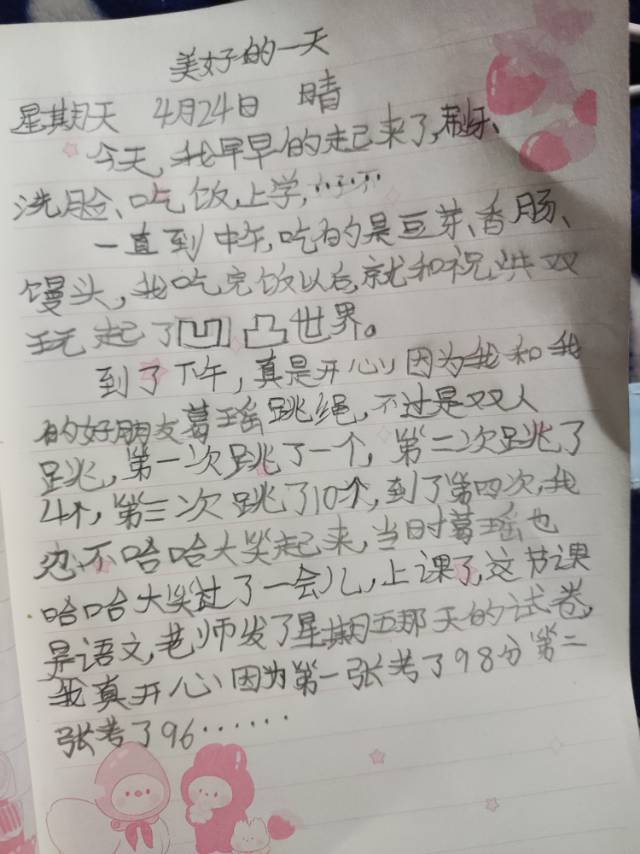 美好的一天
星期天 4月24日 晴
今天,我早早的起来了,刷牙、
洗脸、吃饭,上学,……
一直到中午,吃的是豆芽、香肠、
馒头,我吃完饭以后,就和祝洪双
玩起了凹凸世界。
到了下午,真是开心,因为我和我
的好朋友葛瑶跳绳,不过是双人
跳,第一次跳了一个,第二次跳了
4个,第三次跳了10个,到了第四次,我
忍不哈哈大笑起来,当时葛瑶也
哈哈大笑过了一会儿,上课了,这节课
是语文,老师发了星期五那天的试卷,
我真开心,因为第一张考了98分第二
张考了96……